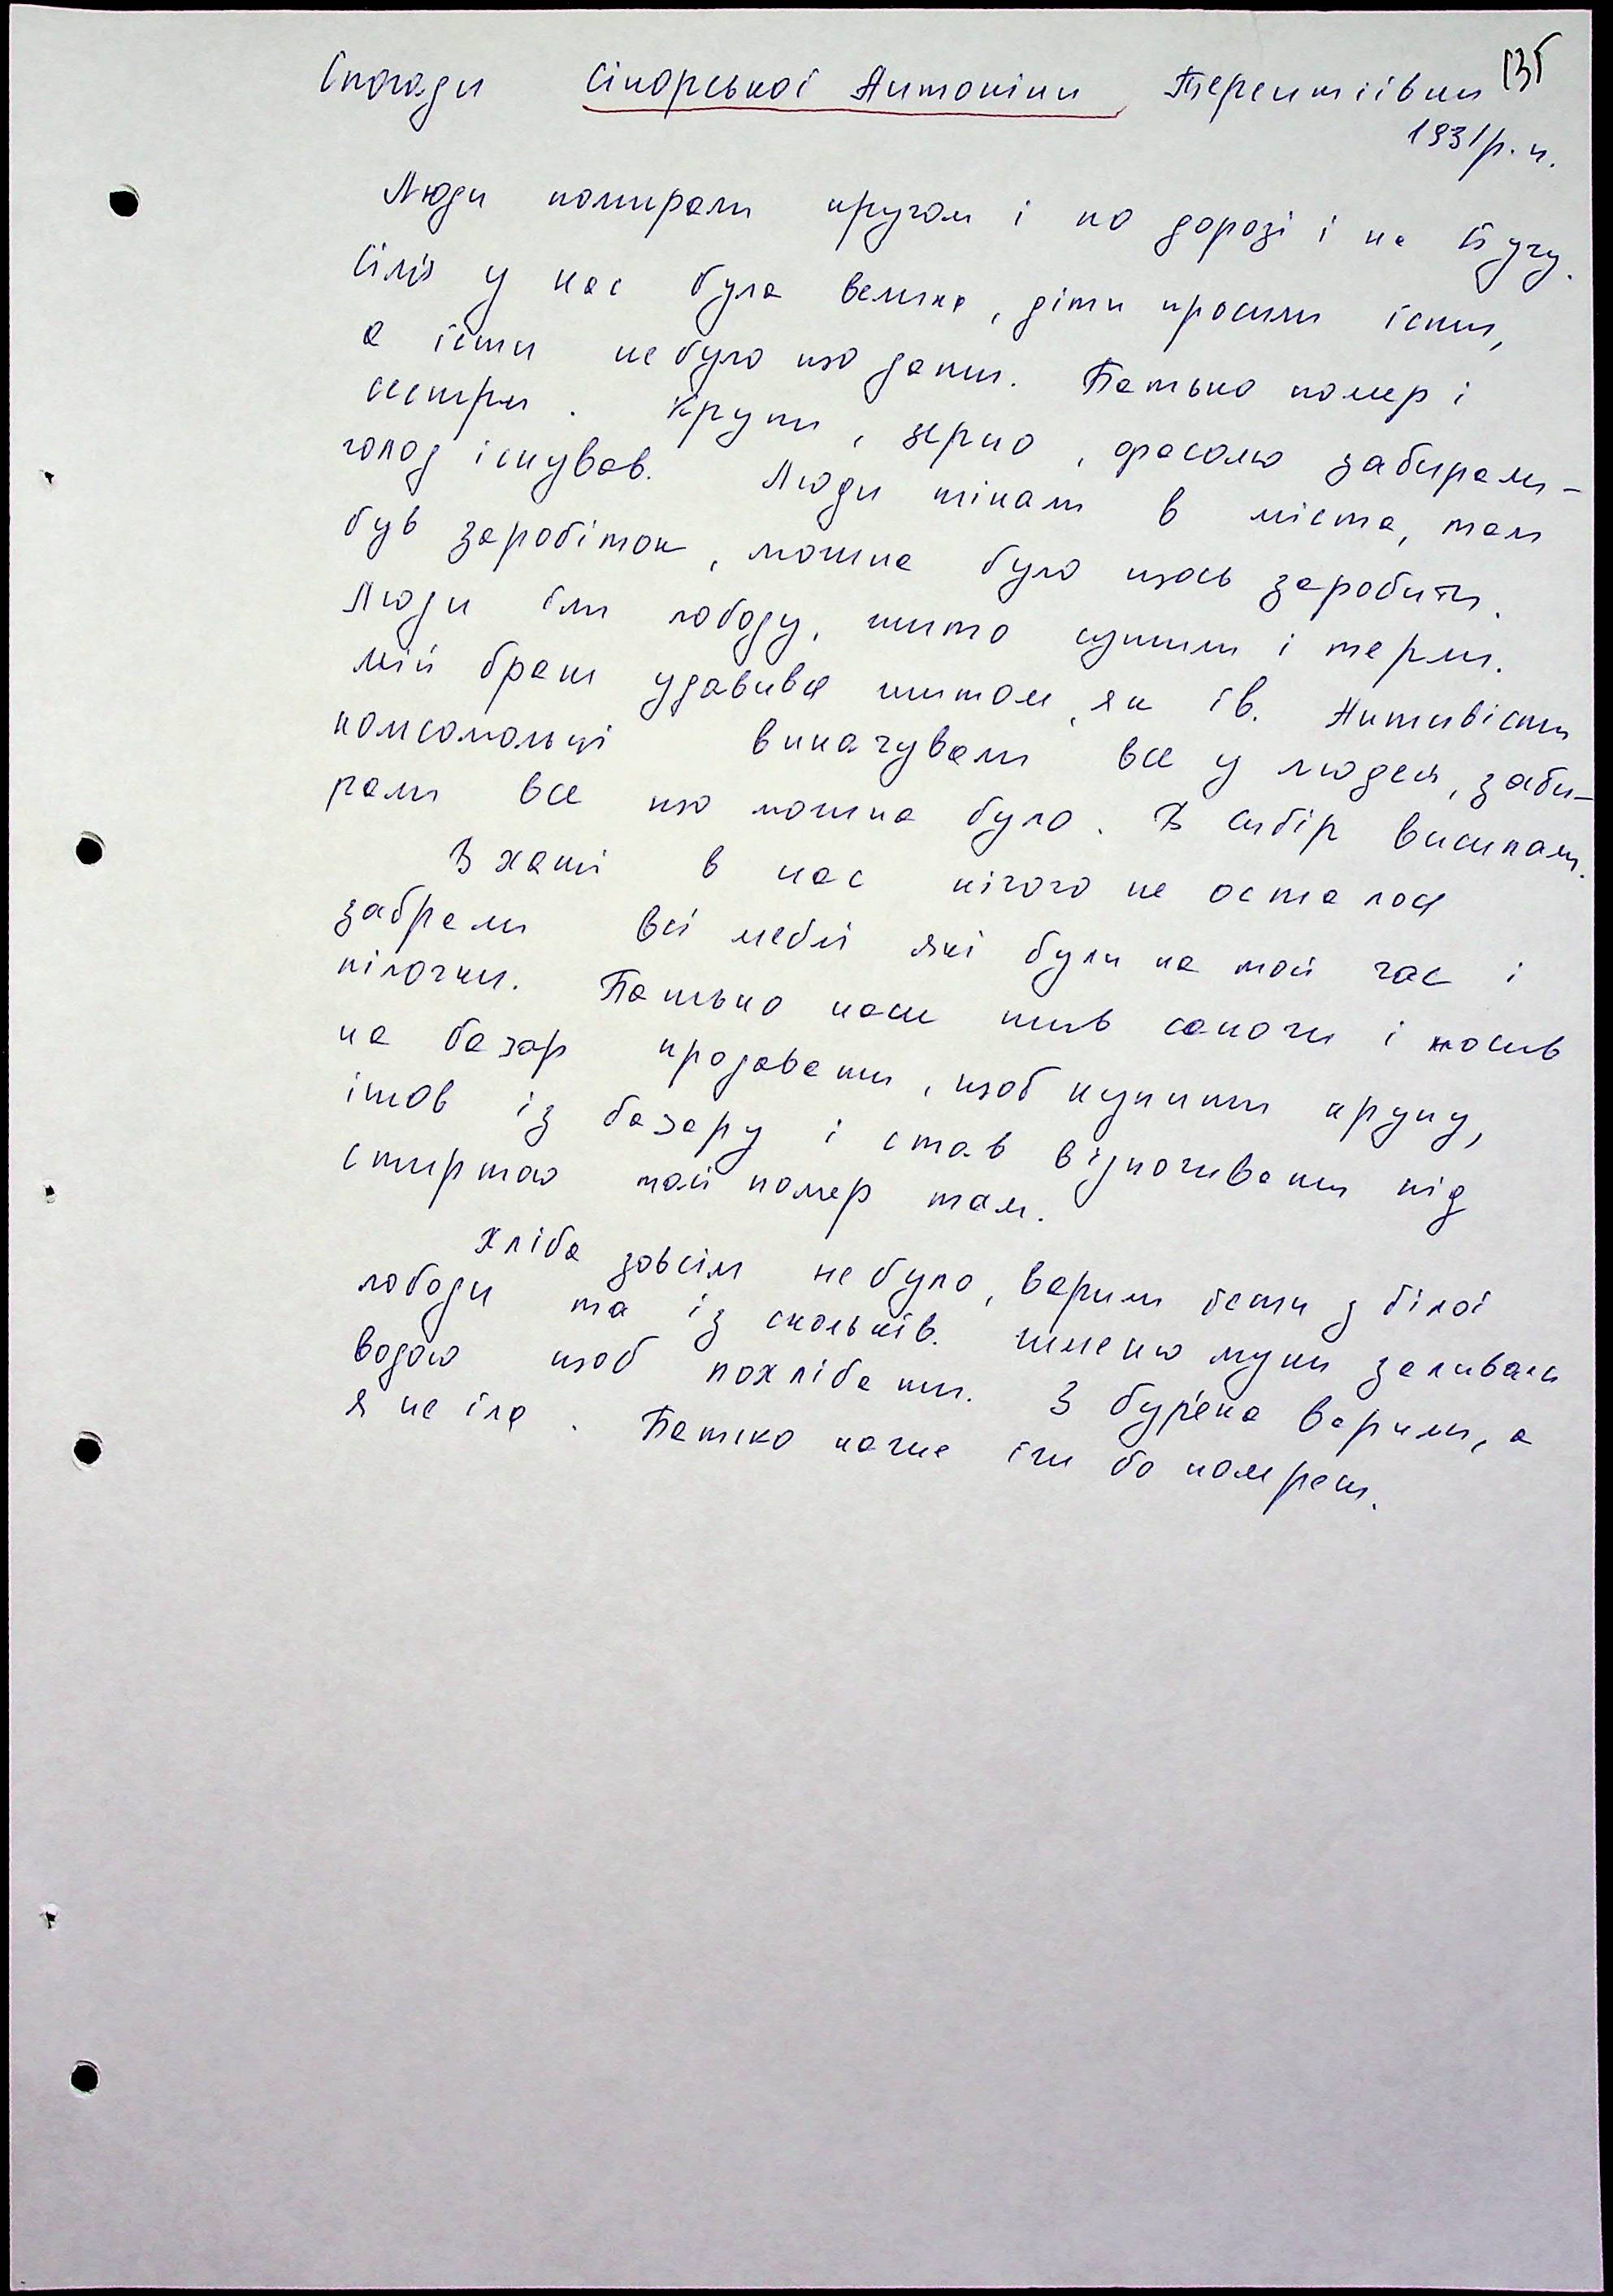 Спогади Сікорської Антоніни Терентіївни
1931 р. н.
Люди помирали кругом і по дорозі і на Бугу.
Сім'я у нас була велика, діти просили їсти,
а їсти не було що дати. Батько помер і
сестри. Крупи, зерно, фасолю забирали –
голод існував. Люди тікали в міста, там
був заробіток, можна було щось заробити.
Люди їли лободу, жито сушили і терли.
Мій брат удавився житом, як їв. Активісти
комсомольці викачували все у людей, заби-
рали все що можна було. В Сибір висилали.
В хаті в нас нічого не осталося
забрали всі меблі які були на той час і
кілочки. Батько наш шив сапоги і носив
на базар продавати, щоб купити крупу,
ішов із базару і став відпочивати під
стиртою той помер там.
Хліба зовсім не було, варили їсти з білої
лободи та із скольків. Жменю муки заливали
водою щоб похлібати. З бур'яна варили, а
я не їла. Батько каже їж бо помреш.